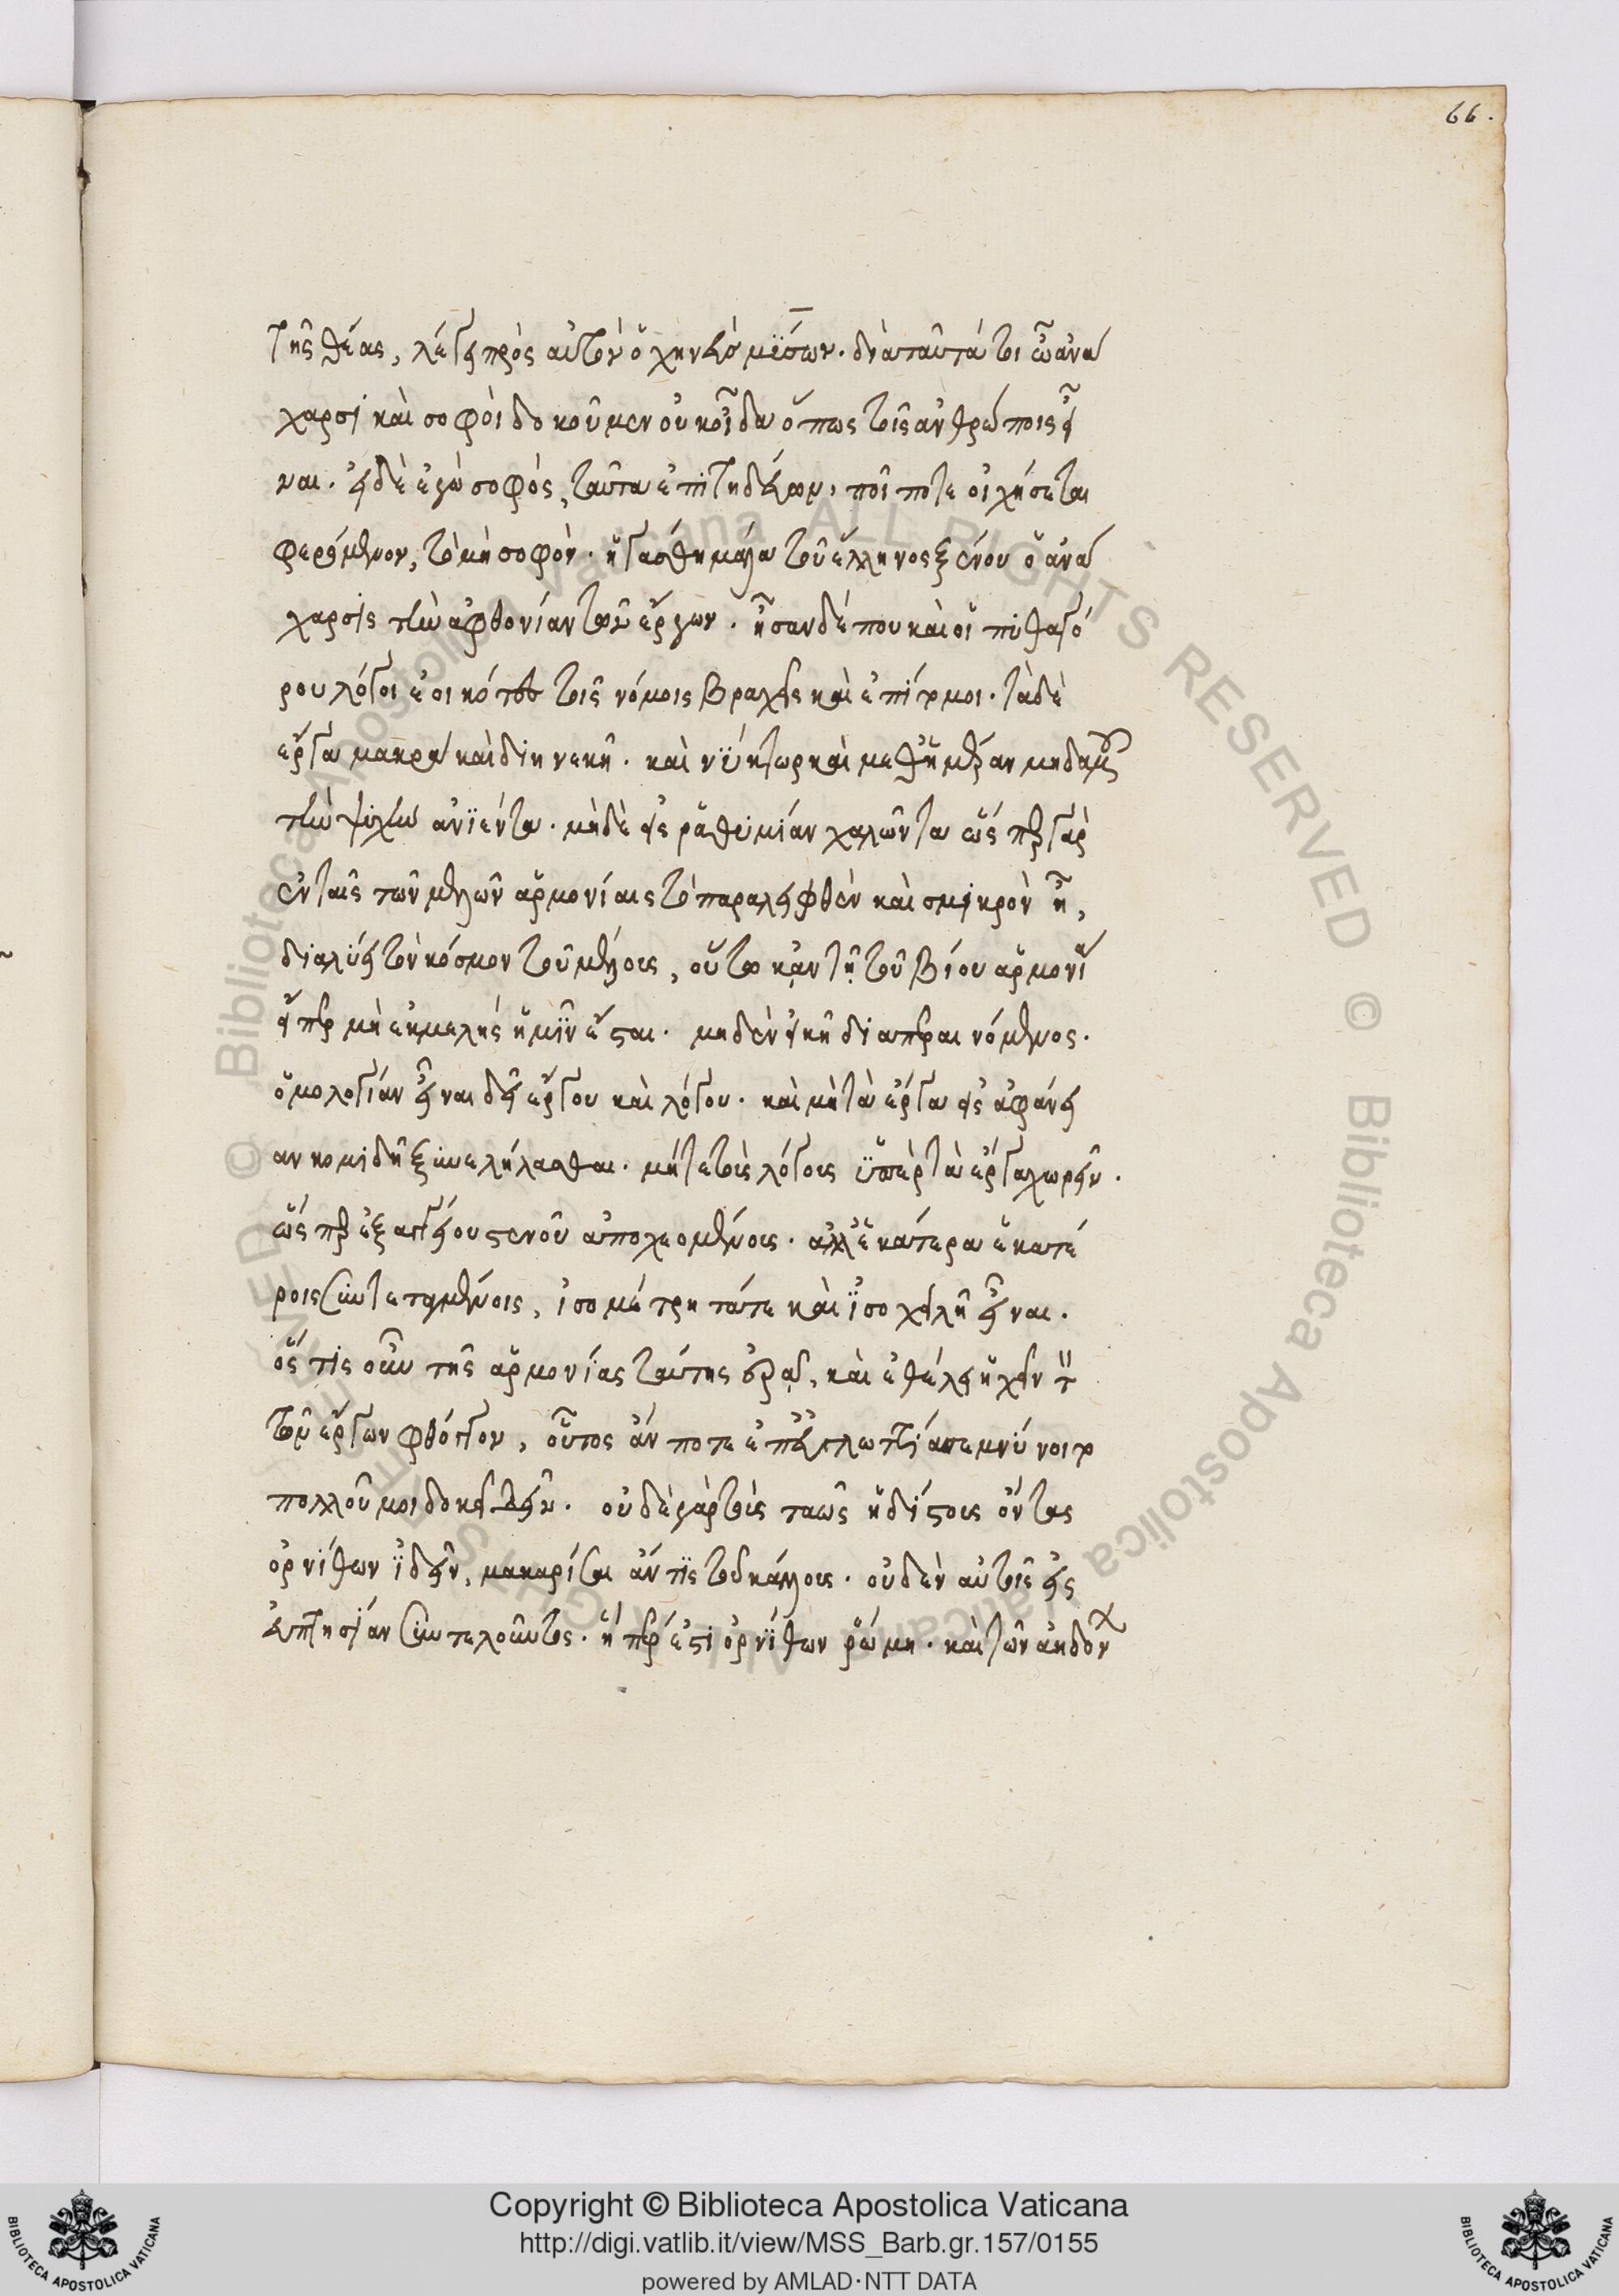 66.
τῆς θέας, λέγει πρὸς αὐτὸν ὁ χηνεὺς μΐσων. διὰ ταῦτά τοι ὦ ἀνά
χαρσι καὶ σοφοὶ δοκοῦμεν οὐκ οἶδα ὅπως τοῖς ἀνθρώποις εἶ
ναι. εἰ δὲ ἐγὼ σοφός, ταῦτα ἐπιτηδεύων, ποῖ ποτε οἰχήσεται
φερόμενον, τὸ μὴ σοφόν. ἠγάσθη μάλα τοῦ ἕλληνος ξένου ὁ ἀνά
χαρσις τὴν ἀφθονίαν τῶν ἔργων. ἦσαν δέ που καὶ οἱ πυθαγό
ρου λόγοι ἐοικότες τοῖς νόμοις βραχεῖς καὶ ἐπίτομοι. τὰ δὲ
ἔργα μακρὰ καὶ διηνεκῆ. καὶ νύκτωρ καὶ μεθ' ἡμέραν μηδαμῶς
τὴν ψυχὴν ἀνιέντα. μηδὲ εἰς ῥαθυμίαν χαλῶντα ὥσπερ γὰρ
ἐν ταῖς τῶν μελῶν ἁρμονίαις τὸ παραλειφθὲν καὶ σμικρὸν ᾖ,
διαλύει τὸν κόσμον τοῦ μέλους, οὕτω κἀν τῇ τοῦ βίου ἁρμονίᾳ
εἴπερ μὴ ἐκμελὴς ἡμῖν ἔσται. μηδὲν εἰκῆ διαπεραινόμενος.
ὁμολογίαν εἶναι δεῖ ἔργου καὶ λόγου. καὶ μὴ τὰ ἔργα εἰς ἀφάνει
αν κομιδῇ ξυνεληλάσθαι. μήτε τοὺς λόγους ὑπὲρ τὰ ἔργα χωρεῖν.
ὥσπερ ἐξ ἀγγείου στενοῦ ἀποχεομένους. ἀλλ' ἑκάτερα ἑκατέ
ροις συντεταγμένοις, ἰσομέτρητά τε καὶ ἰσοχειλῆ εἶναι.
ὅστις οὖν τῆς ἁρμονίας ταύτης ἐρᾷ, καὶ ἐθέλει ἠχεῖν τὸν
τῶν ἔργων φθόγγον, οὗτος ἄν ποτε ἐπ' εὐγλωττίᾳ σεμνύνοιτο
πολλοῦ μοι δοκεῖ δεῖν. οὐδὲ γὰρ τοὺς ταὼς ἡδίστους ὄντας
ὀρνίθων ἰδεῖν, μακαρίσαι ἄν τις τοῦ κάλλους. οὐδὲν αὐτοῖς εἰς
εὐπτησίαν συντελοῦντος. ἥπερ ἐστὶ ὀρνίθων ῥώμη. καὶ τῶν ἀηδόνων
Copyright © Biblioteca Apostolica Vaticana
http://digi.vatlib.it/view/MSS_Barb.gr.157/0155
powered by AMLAD·NTT DATA